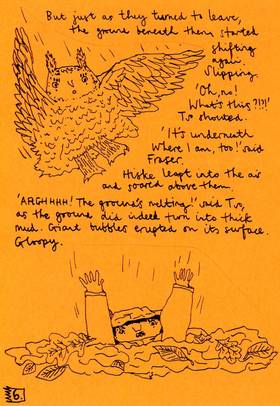 But just as they turned to leave,
the groune beneath them started
shifting
again.
Slipping.
'Oh, no!
What's this?!?!'
Tvs shouted.
'It's underneath
where I am, too!' said
Fraser.
Hiske leapt into the air
and soared above them.
'ARGHHHH! The ground's melting!' said Tvs,
as the ground did indeed turn into thick
mud. Giant bubbles erupted on its surface.
Gloopy.
6.